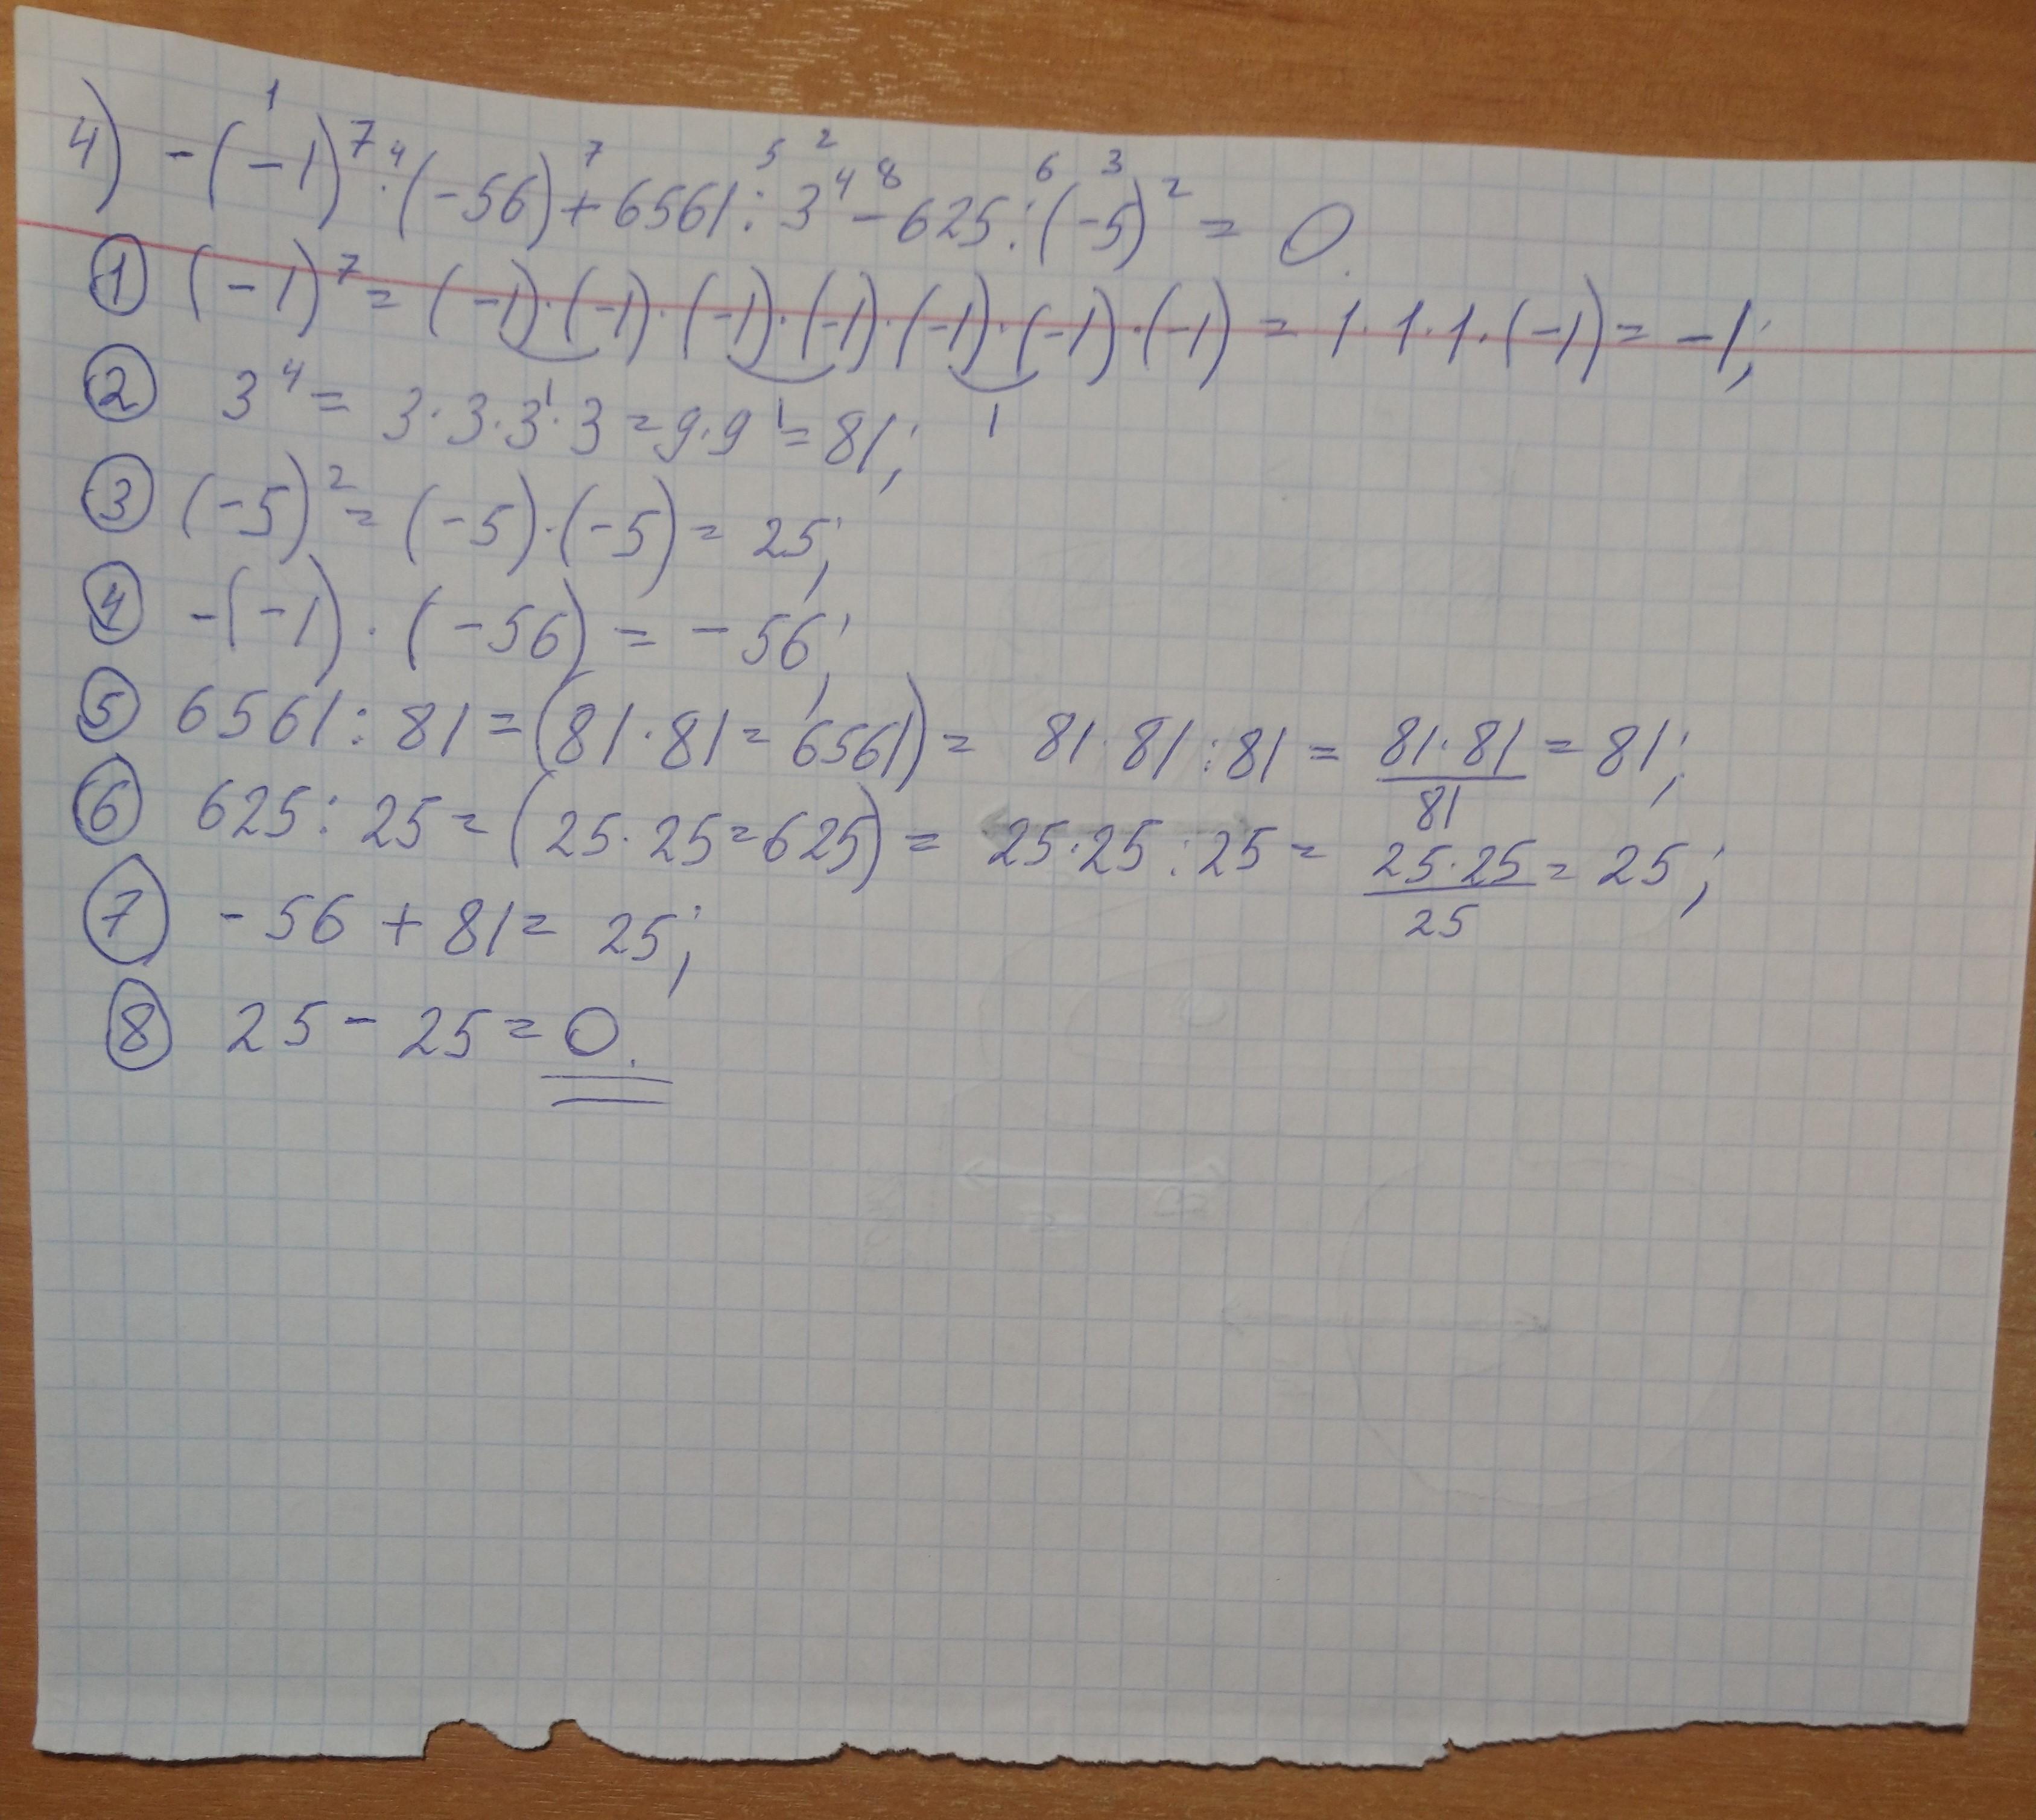 4) -(-1)⁷·(-56)+6561:3⁴-625:(-5)²=0.
1 7 4 7 5 2 8 6 3
① (-1)⁷=(-1)·(-1)·(-1)·(-1)·(-1)·(-1)·(-1)=1·1·1·(-1)=-1;
1 1 1
② 3⁴=3·3·3·3=9·9=81;
③ (-5)²=(-5)·(-5)=25;
④ -(-1)·(-56)=-56;
⑤ 6561:81=(81·81=6561)=81·81:81=81·81/81=81;
⑥ 625:25=(25·25=625)=25·25:25=25·25/25=25;
⑦ -56+81=25;
⑧ 25-25=0.